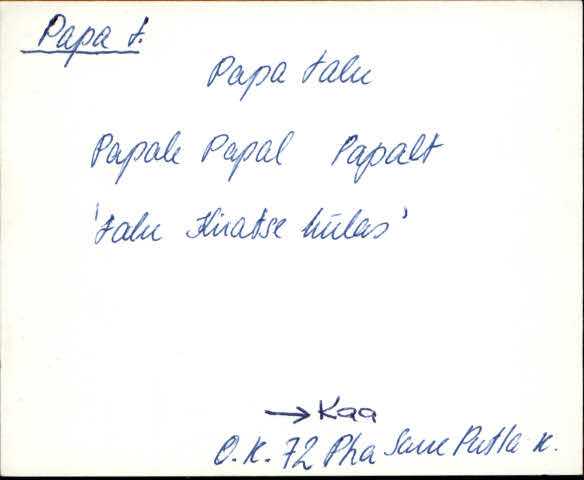 Papa t.
Papa talu
Papale Papal Papalt
'talu Kiratse külas'
→ Kaa
O.K. 72 Pha Saue Putla k.